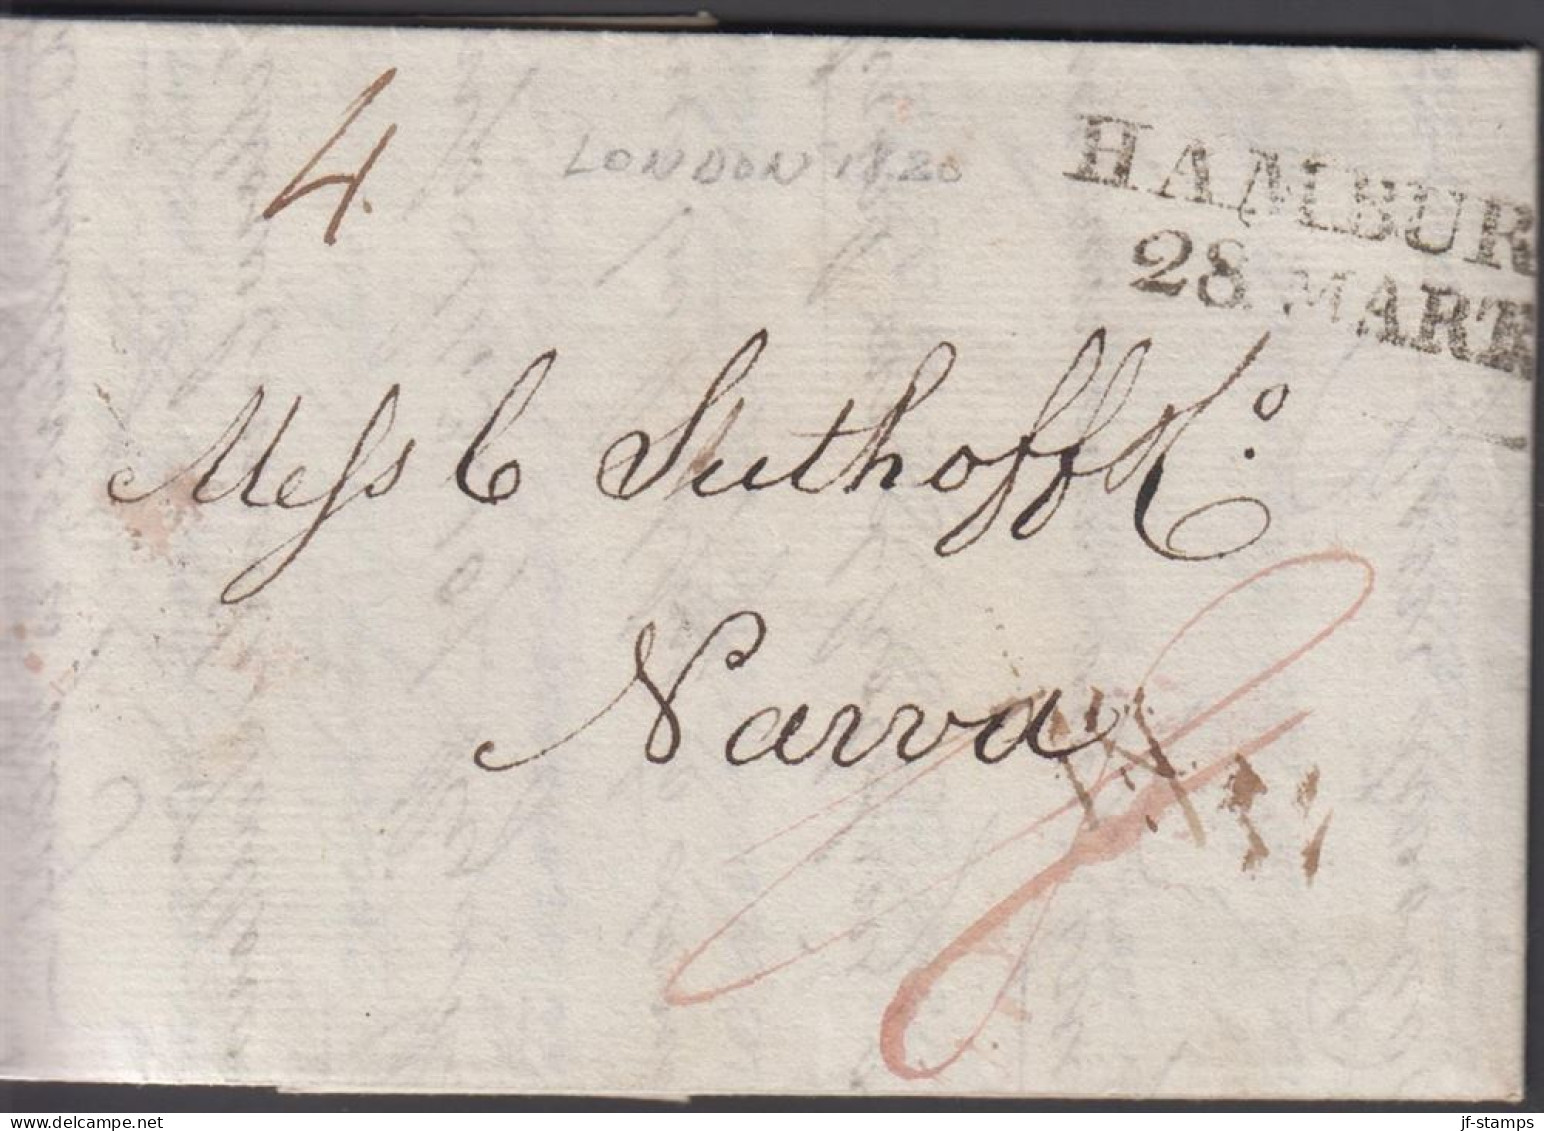 4.
LONDON 1820
HAMBUR
28. MART
Mess C Suthoff & Co.
Narva
jf-stamps